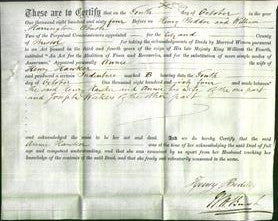 These are to Certify that on the Tenth day of October in the year
One thousand eight hundred and sixty four Before us Henry Beddoe and William
Bush
Two of the Perpetual Commissioners appointed for the City and County
of Bristol for taking the acknowledgments of Deeds by Married Women pursuant
to an Act passed in the third and fourth years of the reign of His late Majesty King William the Fourth,
intituled "An Act for the Abolition of Fines and Recoveries, and for the substitution of more simple modes of
Assurance," appeared personally Annie the wife of
Henry Hawker and produced
a certain Indenture marked B bearing date the Tenth
day of October One thousand eight hundred and sixty four and made between
the said Henry Hawker and Annie his wife of the one part
and Joseph of the other part
and acknowledged the same to be her act and deed. And we do hereby Certify that the said
Annie Hawker was at the time of her acknowledging the said Deed of full
age and competent understanding, and that she was examined by us apart from her Husband touching her
knowledge of the contents of the said Deed, and that she freely and voluntarily consented to the same.
Henry Beddoe
Bush